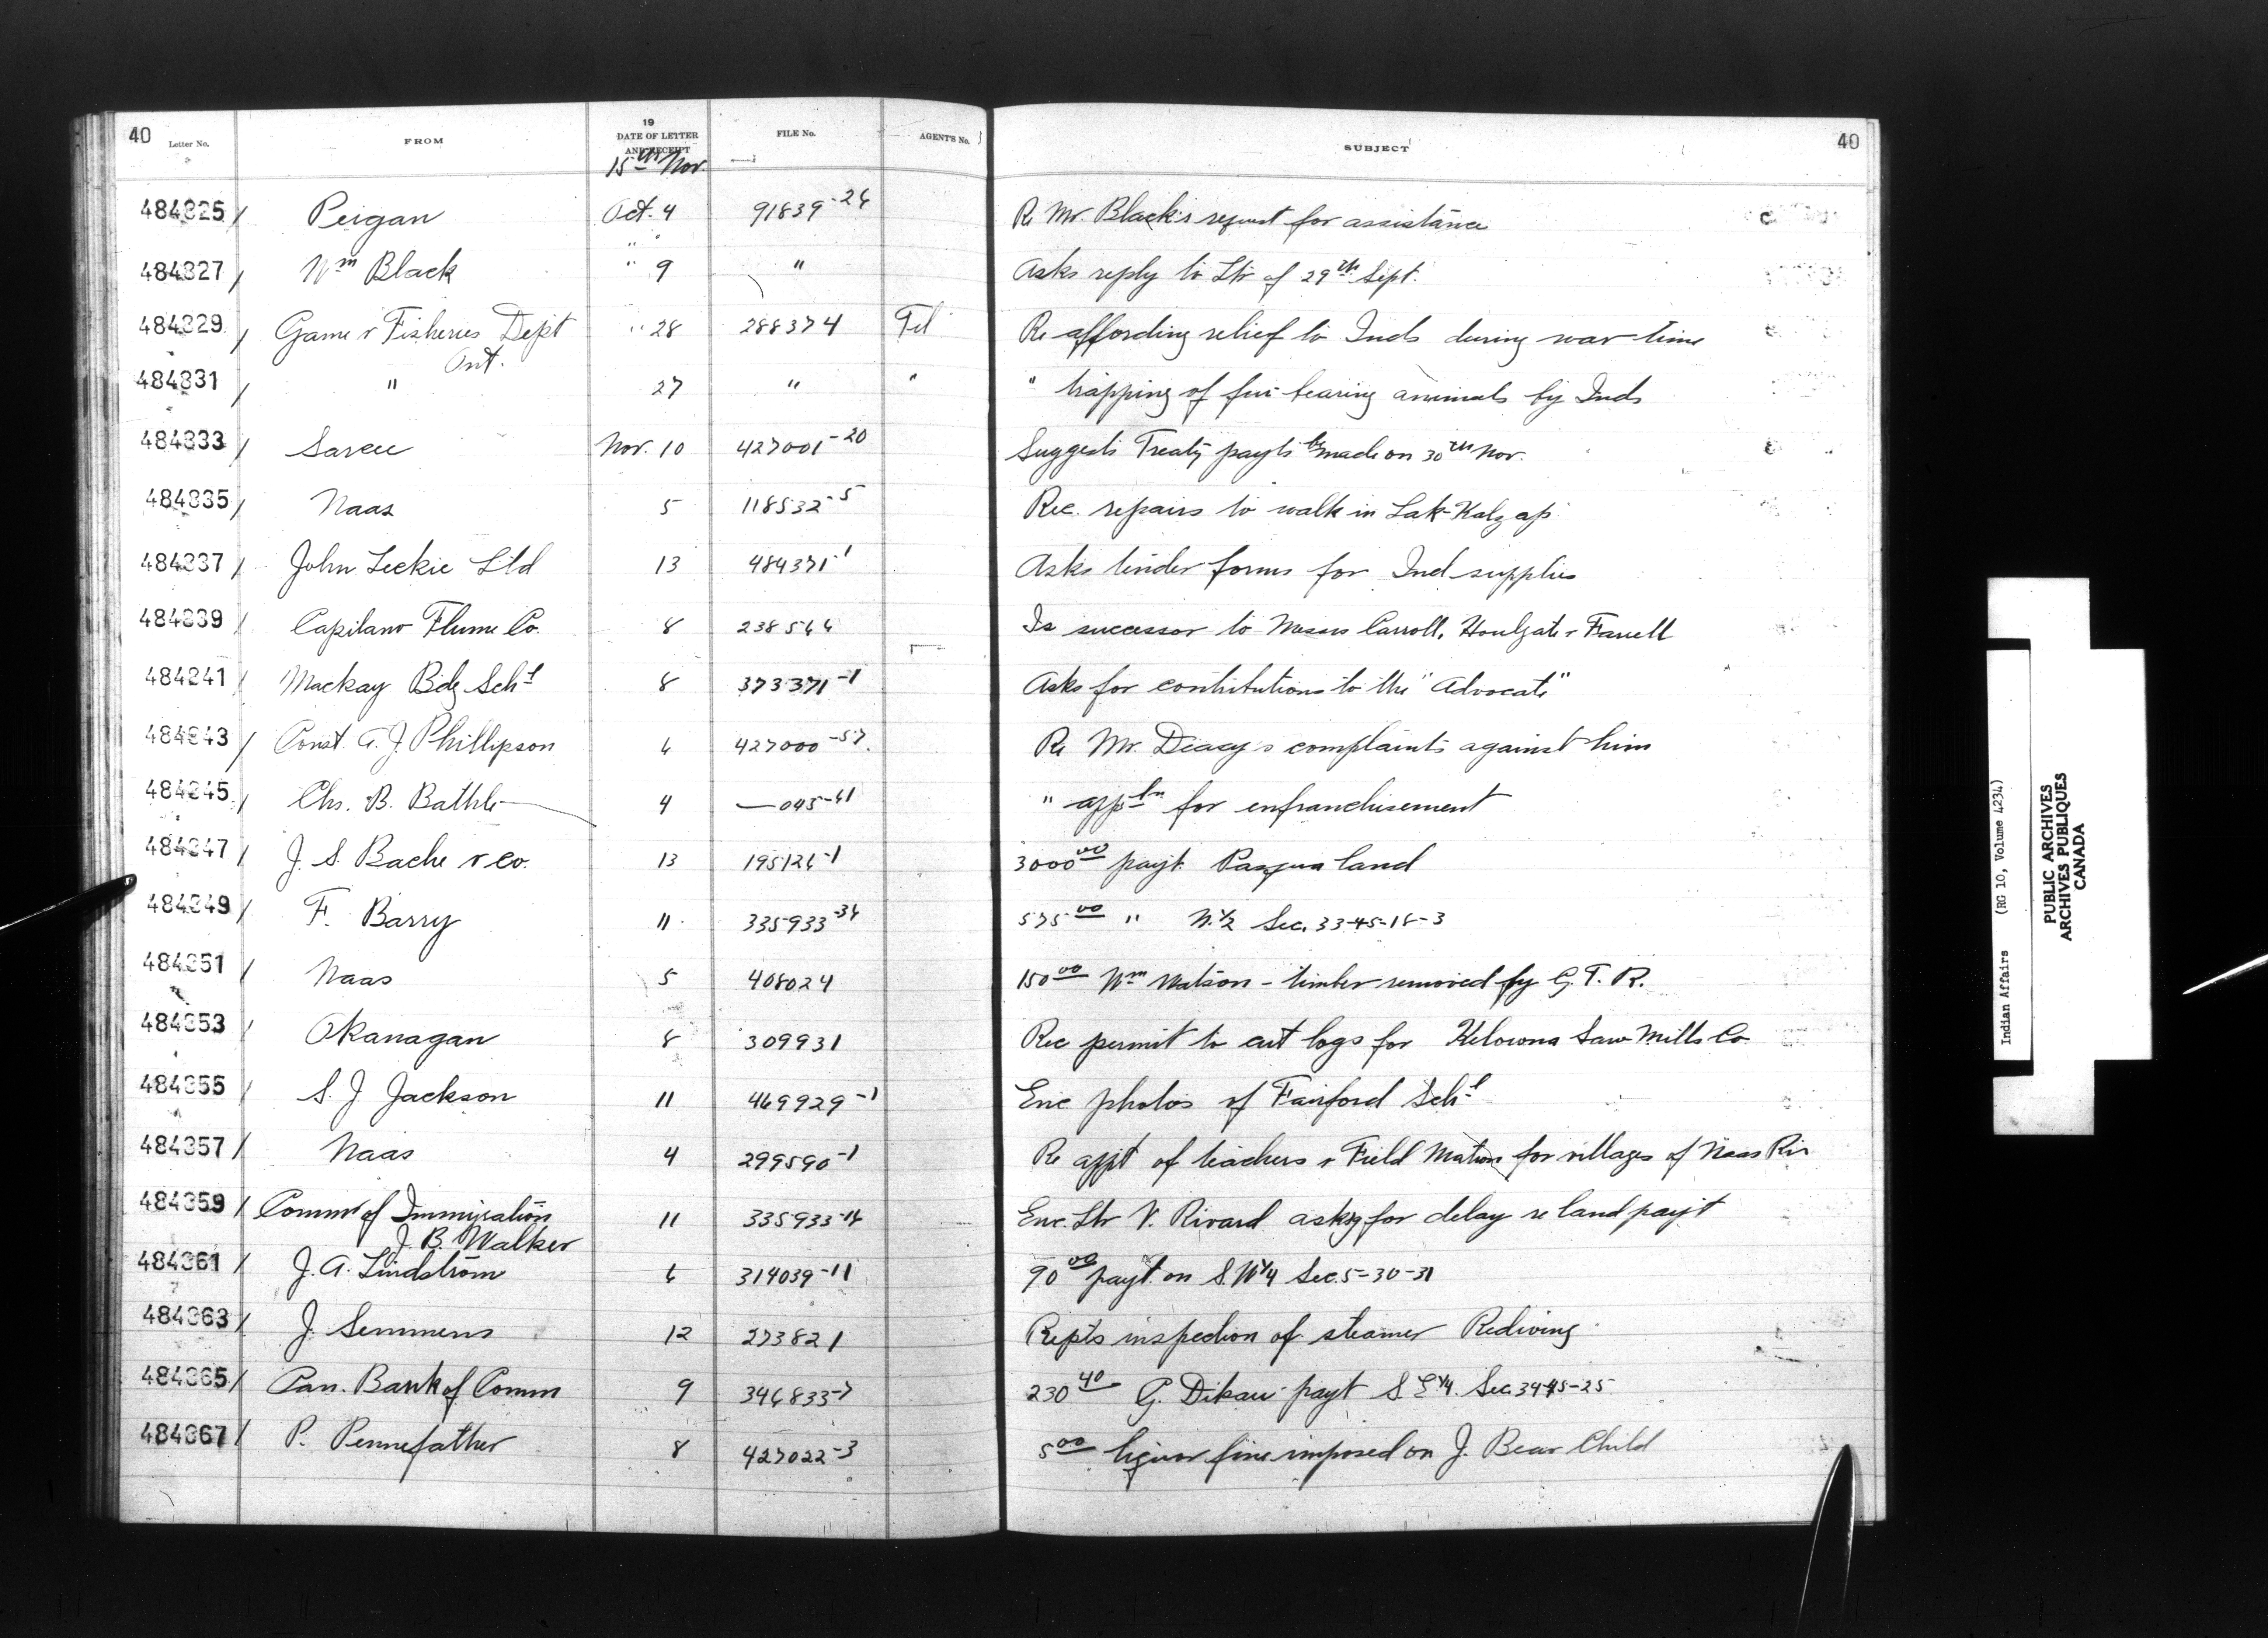 40 Letter No. FROM 19 DATE OF LETTER AND RECEIPT FILE No. AGENT'S No. SUBJECT 40
15th Nov.
484325/ Peigan Oct. 4 91839-26 Re Mr. Black's request for assistance
484327/ Wm Black " 9 " Asks reply to Ltr of 29th Sept.
484329/ Game & Fisheries Dept " 28 288374 Tel Re affording relief to Inds during war time
Ont.
484331/ " 27 " " " trapping of fur-bearing animals by Inds
484333/ Sarcee Nov. 10 427001-20 Suggests Treaty payts be made on 30th Nov.
484335/ Naas 5 118532-5 Rec. repairs to walk in Lak-Kalzap
484337/ John Leckie Ltd 13 484371-1 Asks tender forms for Ind supplies
484339/ Capilano Flume Co. 8 238566 Is successor to Messrs Carroll, Houlgate & Farrell
484341/ Mackay Bdg Schl 8 373371-1 Asks for contributions to the "Advocate"
484343/ Const. A. J. Phillipson 6 427000-57. Re Mr. Deacy's complaints against him
484345/ Chs. B. 4 —045-61 " appln for enfranchisement
484347/ J. S. Bache & Co. 13 195126-1 3000 00 payt. Pasqua land
484349/ F. Barry 11 335933-36 575 00 " N. 1/2 Sec. 33-45-18-3
484351/ Naas 5 408024 150 00 Wm Watson - timber removed by G. T. R.
484353/ Okanagan 8 309931 Rec permit to cut logs for Kelowna Saw Mills Co
484355/ S. J Jackson 11 469929-1 Enc photos of Fairford Schl
484357/ Naas 4 299590-1 Re appt of teachers & Field Matron for villages of Naas Riv
484359/ Commr of Immigration 11 335933-16 Enc. Ltr V. Rivard asksg for delay re land payt
J. B. Walker
484361/ J. A. Lindstrom 6 314039-11 90 00 payt. on S.W 1/4 Sec. 5-30-31
484363/ J. Semmens 12 273821 Repts inspection of steamer Rediving
484365/ Can. Bank of Comm 9 346833-7 230 40 G. payt S E 1/4. Sec. 34-45-25
484367/ P. Pennefather 8 427022-3 5 00 liquor fine imposed on J. Bear Child
Indian Affairs (RG 10, Volume 4234)
PUBLIC ARCHIVES
ARCHIVES PUBLIQUES
CANADA